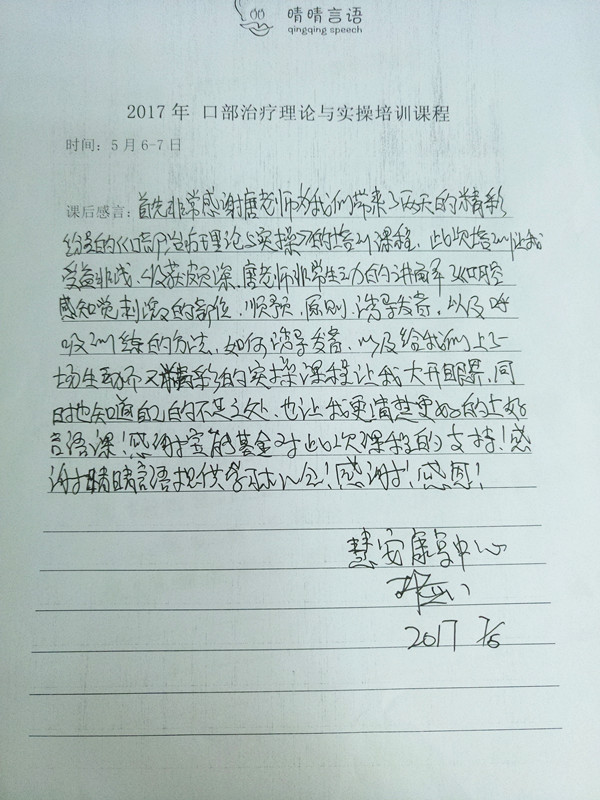 晴晴言语
qingqing speech
2017年 口部治疗理论与实操培训课程
时间：5月6-7日
课后感言：首先非常感谢唐老师为我们带来了两天的精彩
纷呈的《口部治疗理论与实操》的培训课程，此次培训让我
受益非浅、收获颇深，唐老师非常生动的讲解了口腔
感知觉刺激的部位、顺序、原则、诱导发音，以及呼
吸训练的方法，如何诱导发音，以及给我们上了一
场生动而又精彩的实操课程让我大开眼界，同
时也知道自己的不足之处，也让我更清楚更好的上好
言语课！感谢宝能基金对此次课程的支持！感
谢晴晴言语提供学习机会！感谢！感恩！
慧安康复中心
2017 7/5